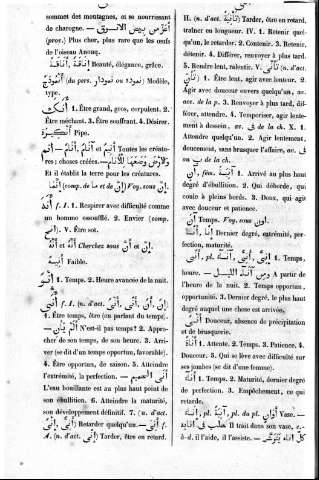 sommet des montagnes, et se nourrissant
de charogne. — أعزّ من بيض الانوق
(prov.) Plus cher, plus rare que les œufs
de l'oiseau Anouq.
أناقة Beauté, élégance, grâce.
(du pers. نموده ou نمودار) Modèle,
type.
1. Être grand, gros, corpulent. 2.
Être méchant. 3. Être souffrant. 4. Désirer.
Pipe.
Toutes les créatu-
res; choses créées. —
Et il établit la terre pour les créatures.
(comp. de ما et de إن) Voy. sous إن
f. I. 1. Respirer avec difficulté comme
un homme essoufflé. 2. Envier (comp.
V. Être sot.
Cherchez sous إن et أن
Faible.
1. Temps. 2. Heure avancée de la nuit.
f. I. (n. d'act.
1. Être temps, être (en parlant du temps).
— N'est-il pas temps? 2. Appro-
cher de son temps, de son heure. 3. Arri-
ver (se dit d'un temps opportun, favorable).
4. Être opportun, de saison. 5. Atteindre
l'extrémité, la perfection. —
L'eau bouillante est au plus haut point de
son ébullition. 6. Atteindre la maturité,
son développement définitif. 7. (n. d'act.
Retarder quelqu'un. — f.
A. (n. d'act. Tarder, être en retard.
II. (n. d'act. تأنية) Tarder, être en retard,
traîner en longueur. IV. 1. Retenir quel-
qu'un, le retarder. 2. Contenir. 3. Retenir,
détenir. 4. Différer, renvoyer à plus tard.
5. Rendre lent, ralentir. V. (n. d'act.
1. Être lent, agir avec lenteur. 2.
Agir avec douceur envers quelqu'un, av.
acc. de la p. 3. Renvoyer à plus tard, dif-
férer, attendre. 4. Temporiser, agir lente-
ment à dessein, av. في de la ch. X. 1.
Attendre quelqu'un. 2. Agir lentement,
doucement, sans brusquer l'affaire, av. في
ou ب de la ch.
fém. آنية 1. Arrivé au plus haut
degré d'ébullition. 2. Qui déborde, qui
coule à pleins bords. 3. Doux, qui agit
avec douceur et patience.
Temps. Voy. sous اون
Dernier degré, extrémité, per-
fection, maturité.
pl. 1. Temps,
heure. — ومن آنآء الليل A partir de
l'heure de la nuit. 2. Temps opportun,
opportunité. 3. Dernier degré, le plus haut
degré auquel une chose est arrivée.
Douceur, absence de précipitation
et de brusquerie.
أناة 1. Attente. 2. Temps. 3. Patience. 4.
Douceur. 3. Qui se lève avec difficulté sur
ses jambes (se dit d'une femme).
1. Temps. 2. Maturité, dernier degré
de perfection. 3. Empêchement, ce qui
retarde.
pl. آنية, pl. du pl. أوان Vase. —
Il trait dans son vase, c.-
à-d. il l'aide, il l'assiste. —